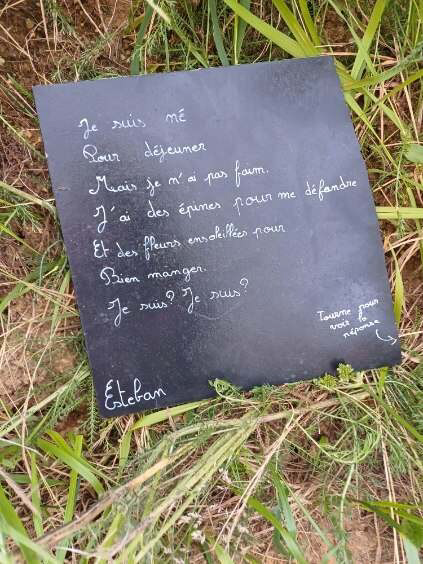 Je suis né
Pour déjeuner
Mais je n'ai pas faim.
J'ai des épines pour me défandre
Et des fleurs ensoleillées pour
Bien manger.
Je suis? Je suis?
Tourne pour
voir la
réponse
Esteban